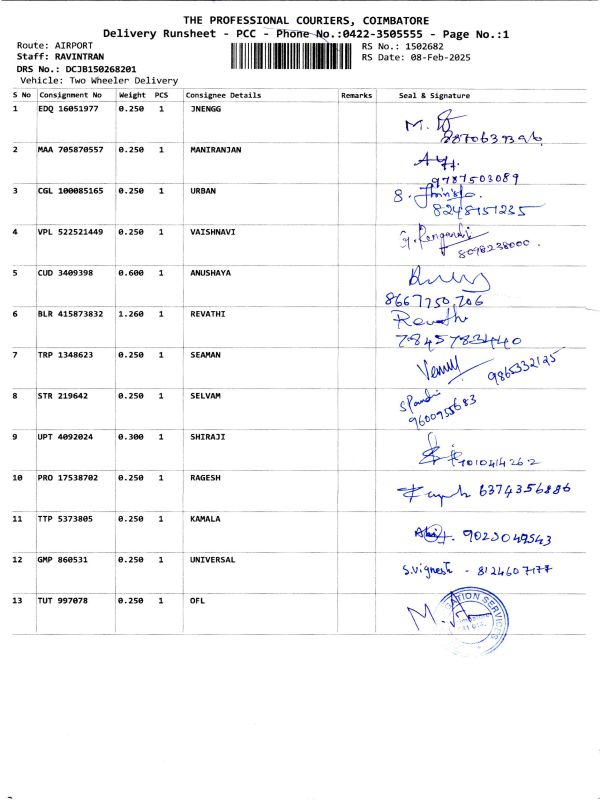 THE PROFESSIONAL COURIERS, COIMBATORE
Delivery Runsheet - PCC - Phone No.:0422-3505555 - Page No.:1
Route: AIRPORT RS No.: 1502682
Staff: RAVINTRAN RS Date: 08-Feb-2025
DRS No.: DCJB150268201
Vehicle: Two Wheeler Delivery
S No Consignment No Weight PCS Consignee Details Remarks Seal & Signature
1 EDQ 16051977 0.250 1 JNENGG
M.
2 MAA 705870557 0.250 1 MANIRANJAN
9787503089
3 CGL 100085165 0.250 1 URBAN
8248151235
4 VPL 522521449 0.250 1 VAISHNAVI
8098238000.
5 CUD 3409398 0.600 1 ANUSHAYA
8667750706
6 BLR 415873832 1.260 1 REVATHI
Revathi
7845783440
7 TRP 1348623 0.250 1 SEAMAN
9865332125
8 STR 219642 0.250 1 SELVAM
9600955683
9 UPT 4092024 0.300 1 SHIRAJI
10 PRO 17538702 0.250 1 RAGESH
6374356886
11 TTP 5373805 0.250 1 KAMALA
9025049543
12 GMP 860531 0.250 1 UNIVERSAL
S.Vignesh - 8124607177
13 TUT 997078 0.250 1 OFL